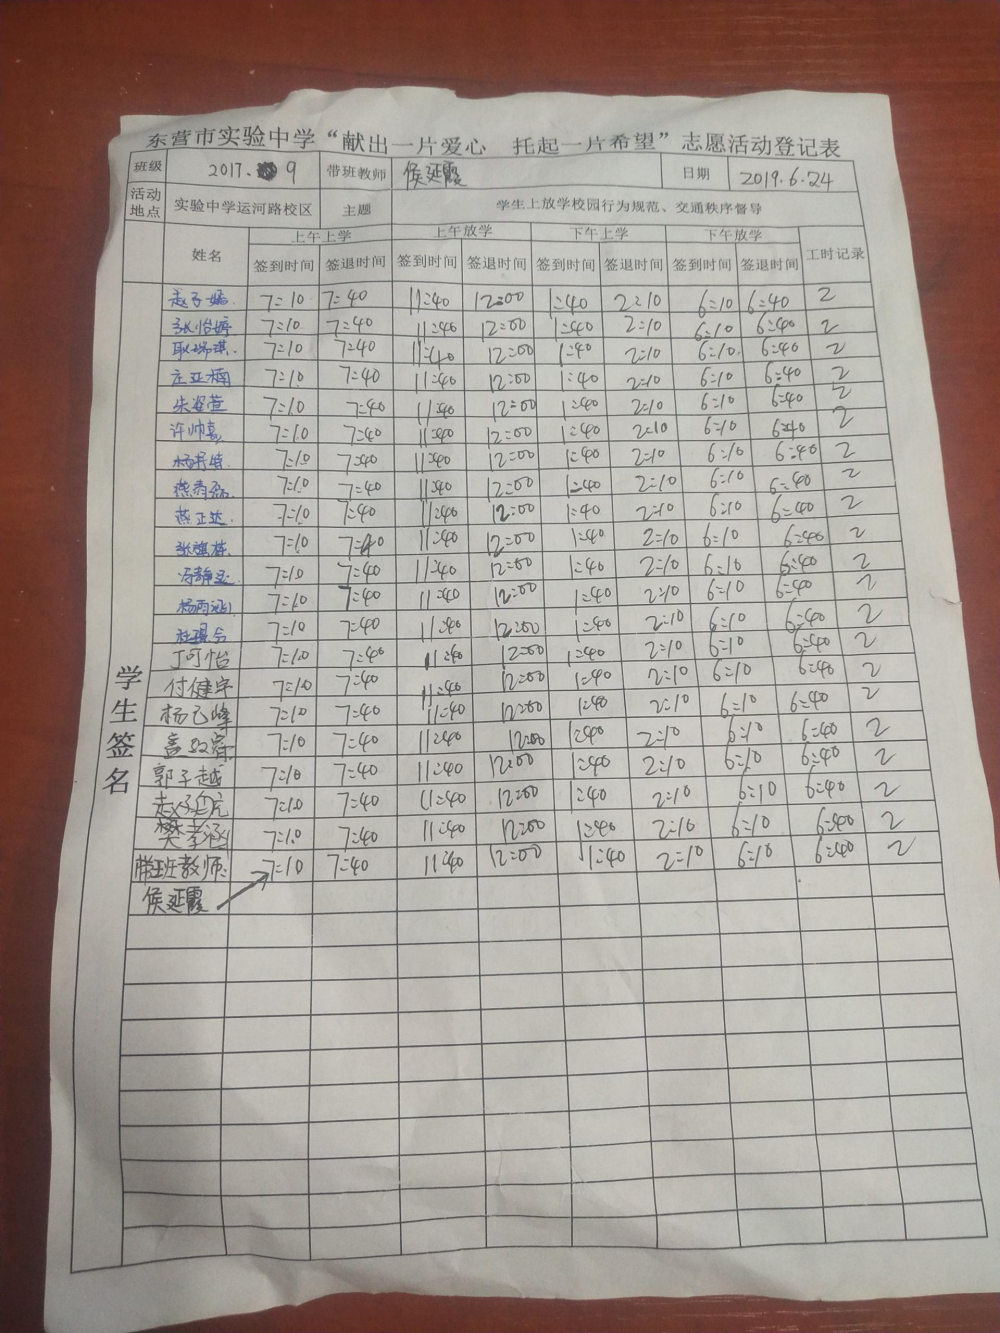 东营市实验中学“献出一片爱心 托起一片希望”志愿活动登记表
班级 2017. 9 带班教师 侯延霞 日期 2019.6.24
活动地点 实验中学运河路校区 主题 学生上放学校园行为规范、交通秩序督导
姓名 上午上学 上午放学 下午上学 下午放学 工时记录
签到时间 签退时间 签到时间 签退时间 签到时间 签退时间 签到时间 签退时间
学生签名
7:10 7:40 11:40 12:00 1:40 2:10 6:10 6:40 2
张怡婷 7:10 7:40 11:40 12:00 1:40 2:10 6:10 6:40 2
耿瑞琪 7:10 7:40 11:40 12:00 1:40 2:10 6:10 6:40 2
庄亚楠 7:10 7:40 11:40 12:00 1:40 2:10 6:10 6:40 2
朱姿萱 7:10 7:40 11:40 12:00 1:40 2:10 6:10 6:40 2
7:10 7:40 11:40 12:00 1:40 2:10 6:10 6:40 2
7:10 7:40 11:40 12:00 1:40 2:10 6:10 6:40 2
7:10 7:40 11:40 12:00 1:40 2:10 6:10 6:40 2
燕正达 7:10 7:40 11:40 12:00 1:40 2:10 6:10 6:40 2
7:10 7:40 11:40 12:00 1:40 2:10 6:10 6:40 2
冯静 7:10 7:40 11:40 12:00 1:40 2:10 6:10 6:40 2
杨雨涵 7:10 7:40 11:40 12:00 1:40 2:10 6:10 6:40 2
7:10 7:40 11:40 12:00 1:40 2:10 6:10 6:40 2
丁可怡 7:10 7:40 11:40 12:00 1:40 2:10 6:10 6:40 2
付健宇 7:10 7:40 11:40 12:00 1:40 2:10 6:10 6:40 2
杨飞峰 7:10 7:40 11:40 12:00 1:40 2:10 6:10 6:40
7:10 7:40 11:40 12:00 1:40 2:10 6:10 6:40 2
郭子越 7:10 7:40 11:40 12:00 1:40 2:10 6:10 6:40 2
7:10 7:40 11:40 12:00 1:40 2:10 6:10 6:40 2
樊孝涵 7:10 7:40 11:40 12:00 1:40 2:10 6:10 6:40 2
带班教师: 7:10 7:40 11:40 12:00 1:40 2:10 6:10 6:40 2
侯延霞